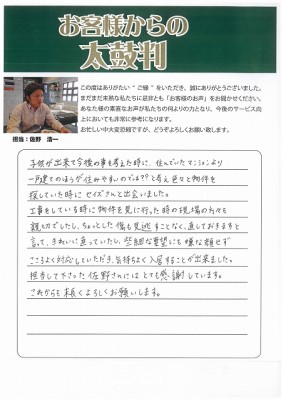 お客様からの
太鼓判
この度はありがたい“ご縁”をいただき、誠にありがとうございました。
まだまだ未熟な私たちに是非とも「お客様のお声」をお聞かせください。
あなた様の素直なお声が私たちの何よりの力となり、今後のサービス向上
においても非常に参考になります。
お忙しい中大変恐縮ですが、どうぞよろしくお願い致します。
担当:佐野 浩一
子供が出来て今後の事を考えた時に、住んでいたマンションより
一戸建てのほうが住みやすいのでは??と考え色々と物件を
探していた時にセイズさんと出会いました。
工事をしている時に物件を見に行った時の現場の方々も
親切でしたし、ちょっとした傷も見逃すことなく、直しておきますと
言って、きれいに直っていたし、些細な要望にも嫌な顔せず
こころよく対応していただき、気持ちよく入居することが出来ました。
担当して下さった佐野さんにはとても感謝しています。
これからも末長くよろしくお願いします。